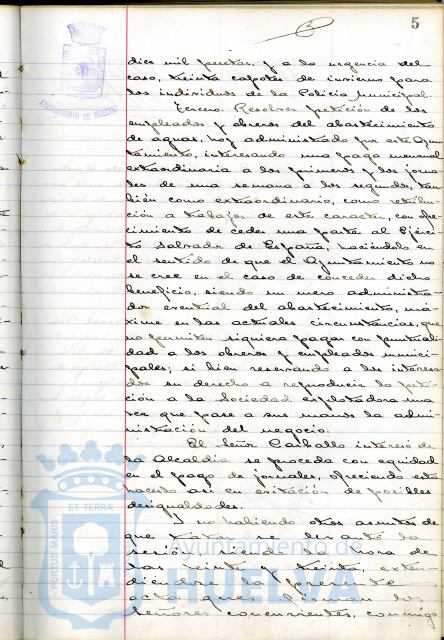 5
AYUNTAMIENTO DE HUELVA
diez mil pesetas, y a la urgencia del
caso, treinta capotes de invierno para
los individuos de la Policía Municipal.
Tercero. Resolver petición de los
empleados y obreros del abastecimiento
de aguas, hoy administrado por este Ayun-
tamiento, interesando una paga mensual
extraordinaria a los primeros y los jorna-
les de una semana a los segundos, tam-
bién como extraordinario, como retribu-
ción a trabajos de este caracter, con ofre-
cimiento de ceder una parte al Ejérci-
to Salvador de España, haciéndolo en
el sentido de que el Ayuntamiento no
se cree en el caso de conceder dicho
beneficio, siendo un mero administra-
dor eventual del abastecimiento, má-
xime en las actuales circunstancias, que
no permiten siquiera pagar con puntuali-
dad a los obreros y empleados munici-
pales; si bien reservando a los interesa-
dos su derecho a reproducir la peti-
ción a la Sociedad explotadora una
vez que pase a sus manos la admi-
nistración del negocio.
El Señor Carballo interesó de
la Alcaldía se proceda con equidad
en el pago de jornales, ofreciendo esta
hacerlo así en evitación de posibles
desigualdades.
Y no habiendo otros asuntos de
que tratar se levantó la
sesión siendo la hora de
las veinte y treinta, exten-
diéndose la presente
acta que firman los
Señores concurrentes, conmigo
PORTUS MARIS
ET TERRÆ
Ayuntamiento de
HUELVA